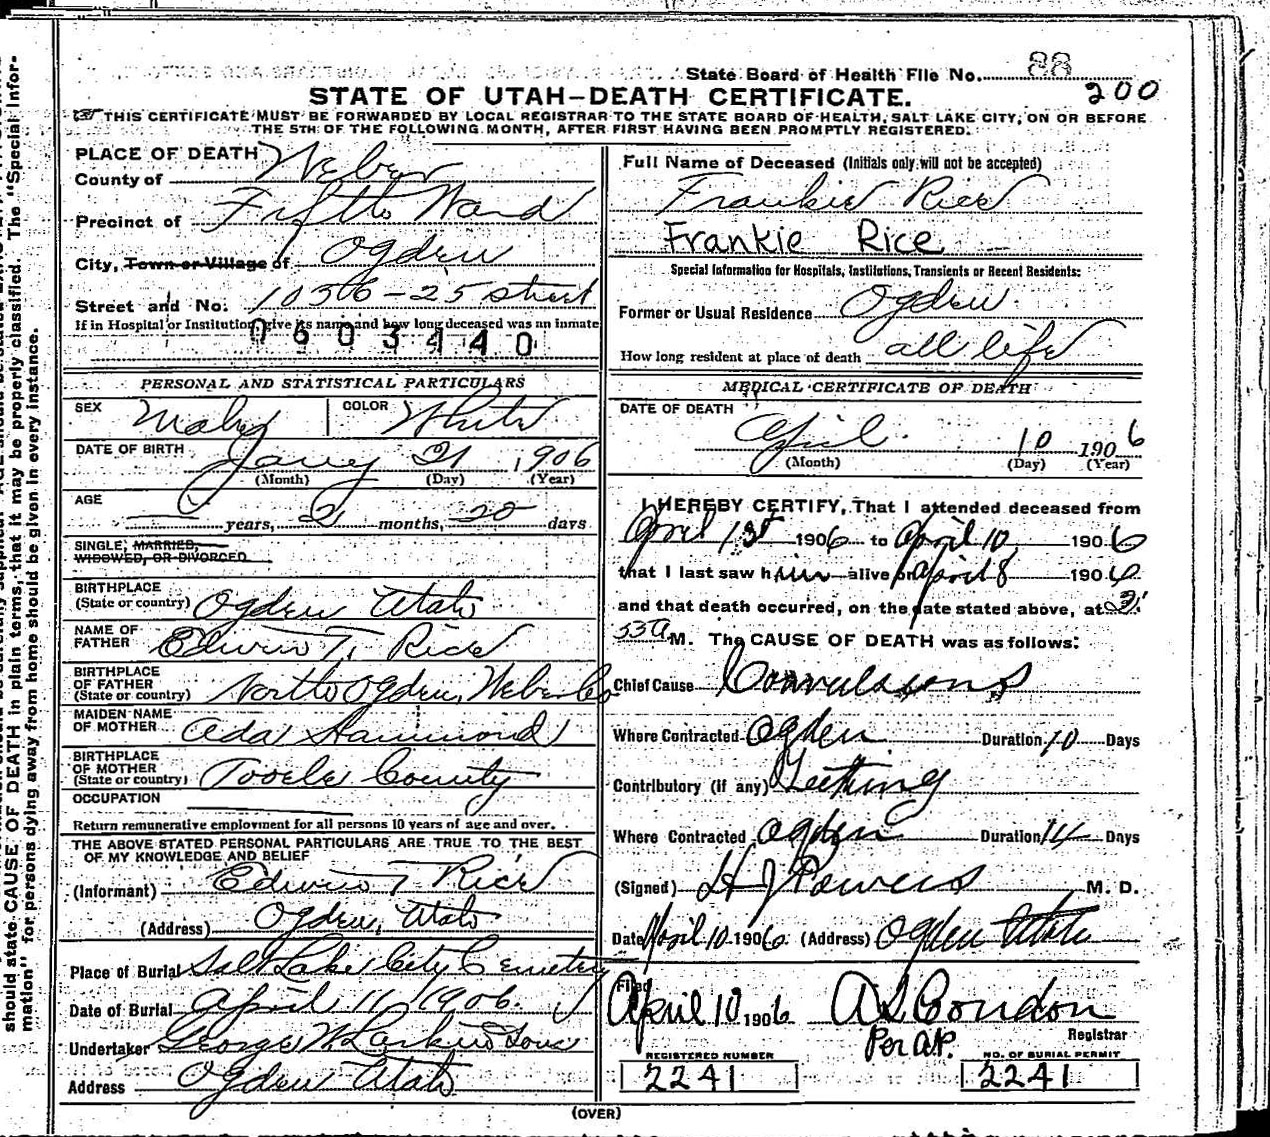 State Board of Health File No. 88
200
STATE OF UTAH—DEATH CERTIFICATE.
THIS CERTIFICATE MUST BE FORWARDED BY LOCAL REGISTRAR TO THE STATE BOARD OF HEALTH, SALT LAKE CITY, ON OR BEFORE
THE 5TH OF THE FOLLOWING MONTH, AFTER FIRST HAVING BEEN PROMPTLY REGISTERED.
PLACE OF DEATH
County of Weber
Precinct of Fifth Ward
City, Town or Village of Ogden
Street and No. 25 Street
If in Hospital or Institution, give its name and how long deceased was an inmate
0603440
PERSONAL AND STATISTICAL PARTICULARS
SEX Male COLOR White
DATE OF BIRTH Jany 21 1906
(Month) (Day) (Year)
AGE
— years, 2 months, 20 days
SINGLE, MARRIED,
WIDOWED, OR DIVORCED
BIRTHPLACE
(State or country) Ogden Utah
NAME OF
FATHER Edwin T. Rice
BIRTHPLACE
OF FATHER
(State or country) North Ogden, Weber Co
MAIDEN NAME
OF MOTHER Ada Hammond
BIRTHPLACE
OF MOTHER
(State or country) Tooele County
OCCUPATION
Return remunerative employment for all persons 10 years of age and over.
THE ABOVE STATED PERSONAL PARTICULARS ARE TRUE TO THE BEST
OF MY KNOWLEDGE AND BELIEF
(Informant) Edwin T Rice
(Address) Ogden, Utah
Place of Burial Salt Lake City Cemetery
Date of Burial April 11, 1906.
Undertaker George W Larkin & Sons
Address Ogden Utah
Full Name of Deceased (Initials only will not be accepted)
Frankie Rice
Frankie Rice
Special Information for Hospitals, Institutions, Transients or Recent Residents:
Former or Usual Residence Ogden
How long resident at place of death all life
MEDICAL CERTIFICATE OF DEATH
DATE OF DEATH
April 10 1906
(Month) (Day) (Year)
I HEREBY CERTIFY, That I attended deceased from
April 1st 1906 to April 10, 1906
that I last saw him alive on April 8 1906
and that death occurred, on the date stated above, at 3:
53 a M. The CAUSE OF DEATH was as follows:
Chief Cause Convulsions
Where Contracted Ogden Duration 10 Days
Contributory (if any) Teething
Where Contracted Ogden Duration 14 Days
(Signed) H J Powers M. D.
Date April 10 1906. (Address) Ogden Utah
Filed
April 10 1906 A L Condon
Per A.P. Registrar
REGISTERED NUMBER
2241
NO. OF BURIAL PERMIT
2241
(OVER)
should state CAUSE OF DEATH in plain terms, that it may be properly classified. The "Special Infor-
mation" for persons dying away from home should be given in every instance.